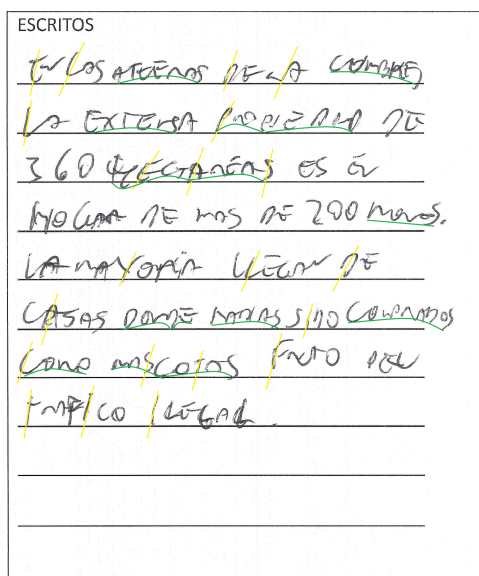 ESCRITOS
EN LAS AFUERAS DE LA CUMBRE,
LA EXTENSA PROPIEDAD DE
360 HECTAREAS ES EL
HOGAR DE MAS DE 200 MONOS.
LA MAYORIA LLEGAN DE
CASAS DONDE HABIAN SIDO COMPRADOS
COMO MASCOTAS FRUTO DEL
TRAFICO ILEGAL.